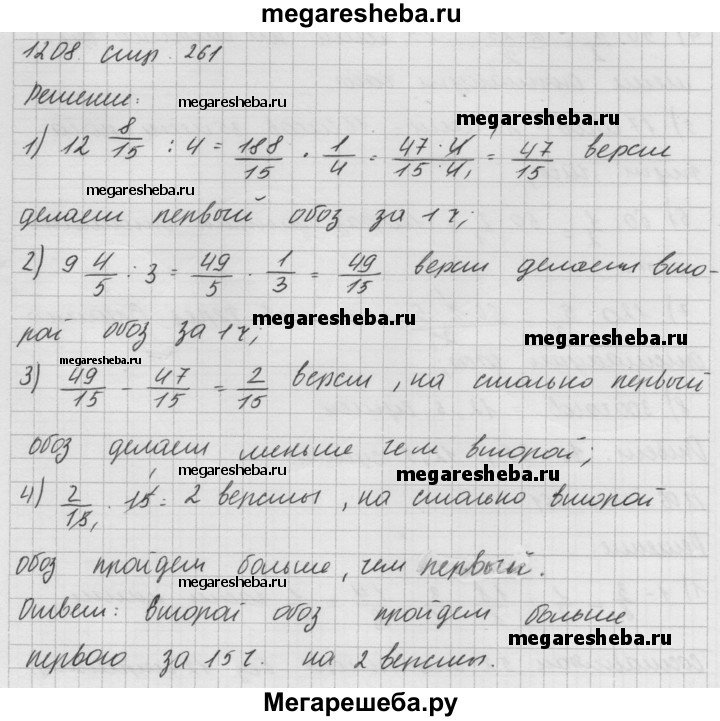 megaresheba.ru
1208. стр. 261
Решение: megaresheba.ru megaresheba.ru
1) 12 8/15 : 4 = 188/15 · 1/4 = 47·4/15·4 1 = 47/15 верст
megaresheba.ru
делает первый обоз за 1 ч;
2) 9 4/5 : 3 = 49/5 · 1/3 = 49/15 верст делает вто-
megaresheba.ru
рой обоз за 1 ч; megaresheba.ru
megaresheba.ru
3) 49/15 - 47/15 = 2/15 верст, на столько первый
обоз делает меньше чем второй;
megaresheba.ru megaresheba.ru
4) 2/15 1 · 15 1 = 2 версты, на столько второй
обоз пройдет больше, чем первый.
megaresheba.ru
Ответ: второй обоз пройдет больше
megaresheba.ru
первого за 15 ч. на 2 версты.
Мегарешеба.ру